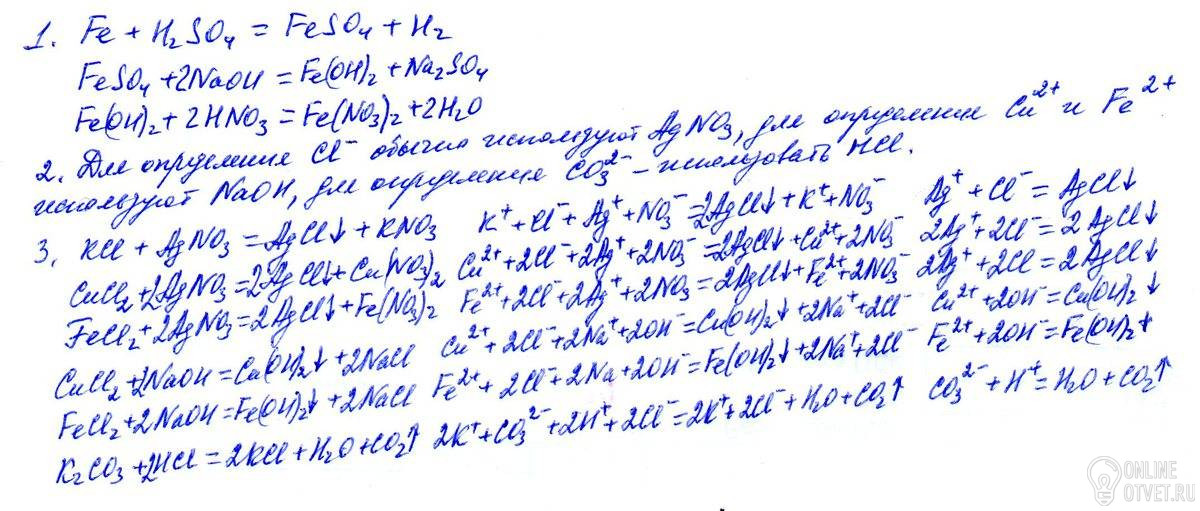 1. Fe + H₂SO₄ = FeSO₄ + H₂
FeSO₄ + 2NaOH = Fe(OH)₂ + Na₂SO₄
Fe(OH)₂ + 2HNO₃ = Fe(NO₃)₂ + 2H₂O
2. Для определения Cl⁻ обычно используют AgNO₃, для определения Cu²⁺ и Fe²⁺
используют NaOH, для определения CO₃²⁻ – использовать HCl.
3. KCl + AgNO₃ = AgCl↓ + KNO₃ K⁺ + Cl⁻ + Ag⁺ + NO₃⁻ = 2AgCl↓ + K⁺ + NO₃⁻ Ag⁺ + Cl⁻ = AgCl↓
CuCl₂ + 2AgNO₃ = 2AgCl↓ + Cu(NO₃)₂ Cu²⁺ + 2Cl⁻ + 2Ag⁺ + 2NO₃⁻ = 2AgCl↓ + Cu²⁺ + 2NO₃⁻ 2Ag⁺ + 2Cl⁻ = 2AgCl↓
FeCl₂ + 2AgNO₃ = 2AgCl↓ + Fe(NO₃)₂ Fe²⁺ + 2Cl⁻ + 2Ag⁺ + 2NO₃⁻ = 2AgCl↓ + Fe²⁺ + 2NO₃⁻ 2Ag⁺ + 2Cl = 2AgCl↓
CuCl₂ + 2NaOH = Cu(OH)₂↓ + 2NaCl Cu²⁺ + 2Cl⁻ + 2Na⁺ + 2OH⁻ = Cu(OH)₂↓ + 2Na⁺ + 2Cl⁻ Cu²⁺ + 2OH⁻ = Cu(OH)₂↓
FeCl₂ + 2NaOH = Fe(OH)₂↓ + 2NaCl Fe²⁺ + 2Cl⁻ + 2Na + 2OH⁻ = Fe(OH)₂↓ + 2Na⁺ + 2Cl⁻ Fe²⁺ + 2OH⁻ = Fe(OH)₂↓
K₂CO₃ + 2HCl = 2KCl + H₂O + CO₂↑ 2K⁺ + CO₃²⁻ + 2H⁺ + 2Cl⁻ = 2K⁺ + 2Cl⁻ + H₂O + CO₂↑ CO₃²⁻ + H⁺ = H₂O + CO₂↑
ONLINE
OTVET.RU